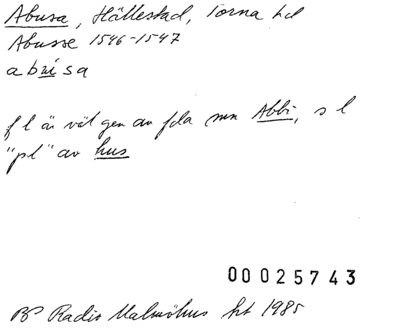 Abusa, Hällestad, Torna hd
Abusse 1546-1547
abu̇́sa
f l är väl gen av fda mn Abbi, s l
"pl" av hus
00025743
BP Radio Malmöhus ht 1985